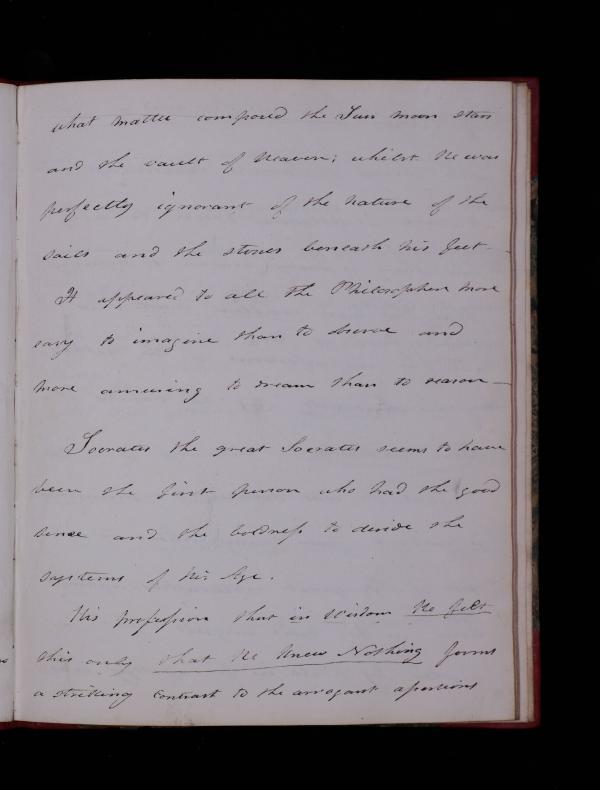 what matter composed the Sun moon stars
and the vault of Heaven; whilst He was
perfectly ignorant of the nature of the
soils and the stones beneath his feet –
It appeared to all the Philosophers more
easy to imagine than to observe and
more amusing to dream than to reason –
Socrates the great Socrates seems to have
been the first person who had the good
sense and the boldness to deride the
systems of his Age.
His profession that in wisdom He felt
this only that He knew Nothing forms
a striking contrast to the arrogant assertions